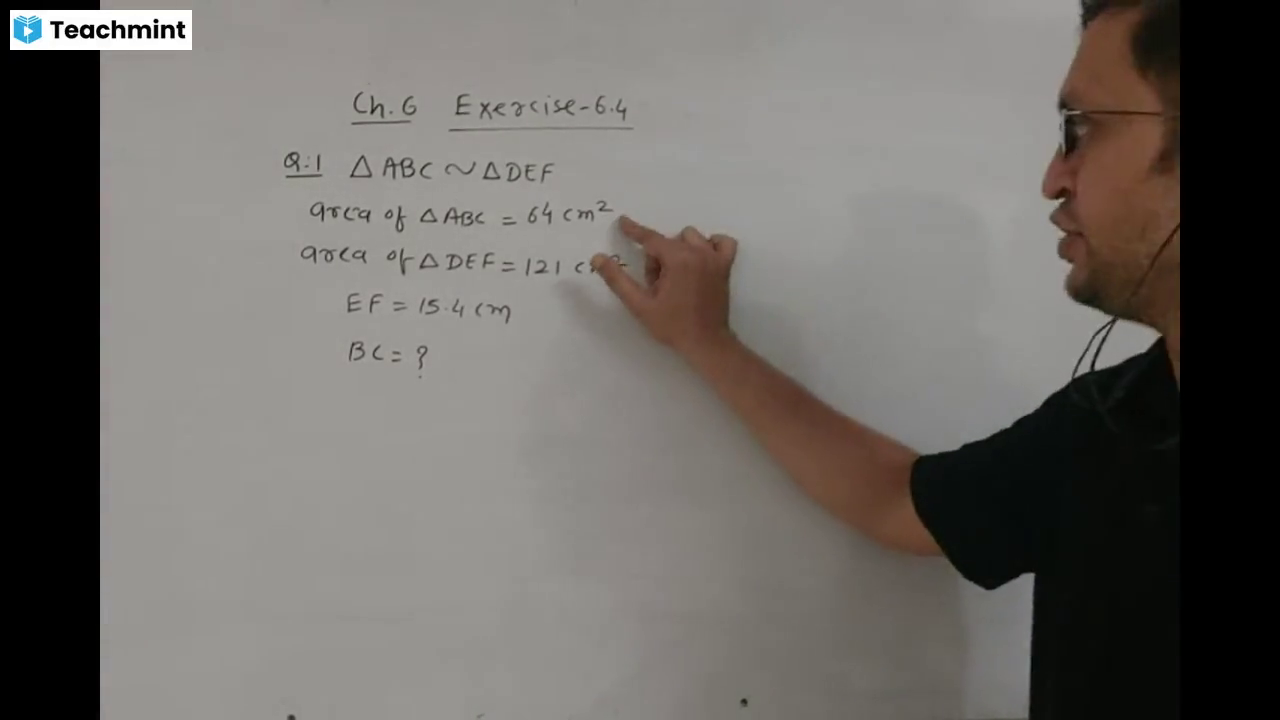 Teachmint
Ch. 6 Exercise-6.4
Q:1 △ ABC ~ △ DEF
area of △ ABC = 64 cm²
area of △ DEF = 121 cm²
EF = 15.4 cm
BC = ?